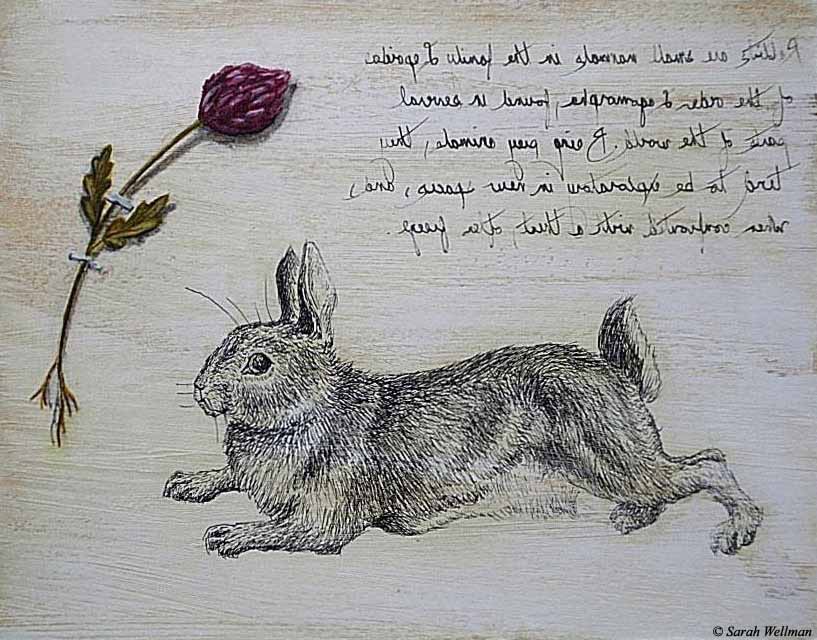 Rabbits are small mammals in the family Leporidae
of the order Lagomorpha, found in several
parts of the world. Being prey animals, they
tend to be exploratory in new spaces, and,
when confronted with a threat, often freeze.
© Sarah Wellman